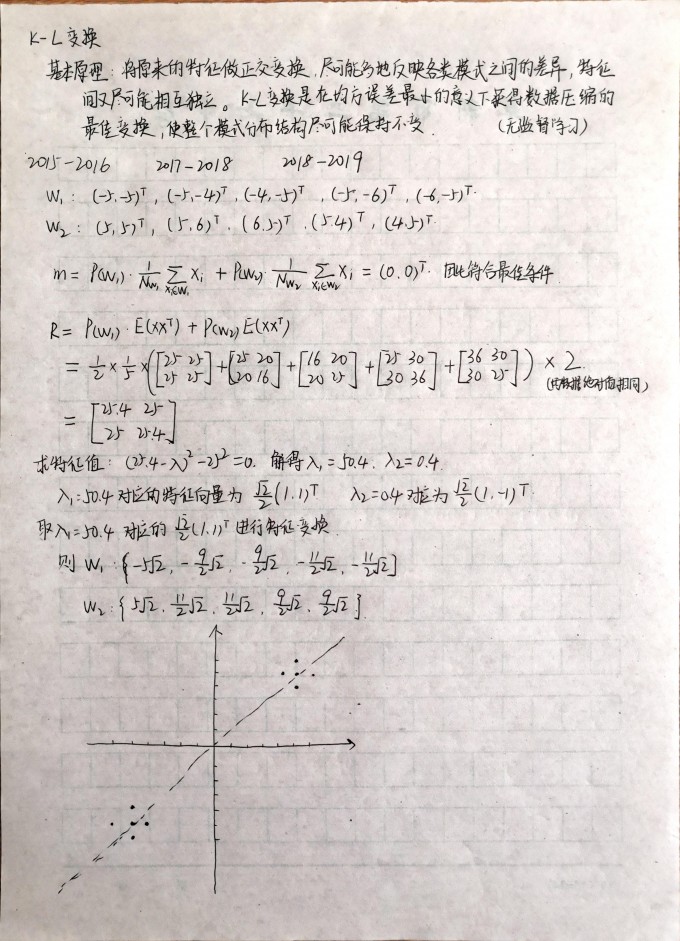 K-L变换
基本原理：将原来的特征做正交变换，尽可能多地反映各类模式之间的差异，特征
间又尽可能相互独立。K-L变换是在均方误差最小的意义下获得数据压缩的
最佳变换，使整个模式分布结构尽可能保持不变. (无监督学习)
2015-2016 2017-2018 2018-2019
W₁: (-5,-5)ᵀ, (-5,-4)ᵀ, (-4,-5)ᵀ, (-5,-6)ᵀ, (-6,-5)ᵀ.
W₂: (5,5)ᵀ, (5,6)ᵀ, (6.5)ᵀ, (5.4)ᵀ, (4.5)ᵀ.
m = P(W₁)·1/N_W₁ ∑_{Xi∈W₁} Xi + P(W₂)·1/N_W₂ ∑_{Xi∈W₂} Xi = (0.0)ᵀ. 因此符合最佳条件.
R = P(W₁)·E(XXᵀ) + P(W₂)E(XXᵀ)
= 1/2 × 1/5 × ([25 25; 25 25] + [25 20; 20 16] + [16 20; 20 25] + [25 30; 30 36] + [36 30; 30 25]) × 2
数据绝对值相同)
= [25.4 25; 25 25.4]
求特征值: (25.4-λ)²-25²=0. 解得λ₁=50.4. λ₂=0.4.
λ₁=50.4对应的特征向量为 √2/2(1.1)ᵀ λ₂=0.4对应为√2/2(1,-1)ᵀ
取λ₁=50.4对应的√2/2(1.1)ᵀ进行特征变换.
则 W₁:{-5√2, -9/2√2, -9/2√2, -11/2√2, -11/2√2}
W₂:{5√2, 11/2√2, 11/2√2, 9/2√2, 9/2√2}